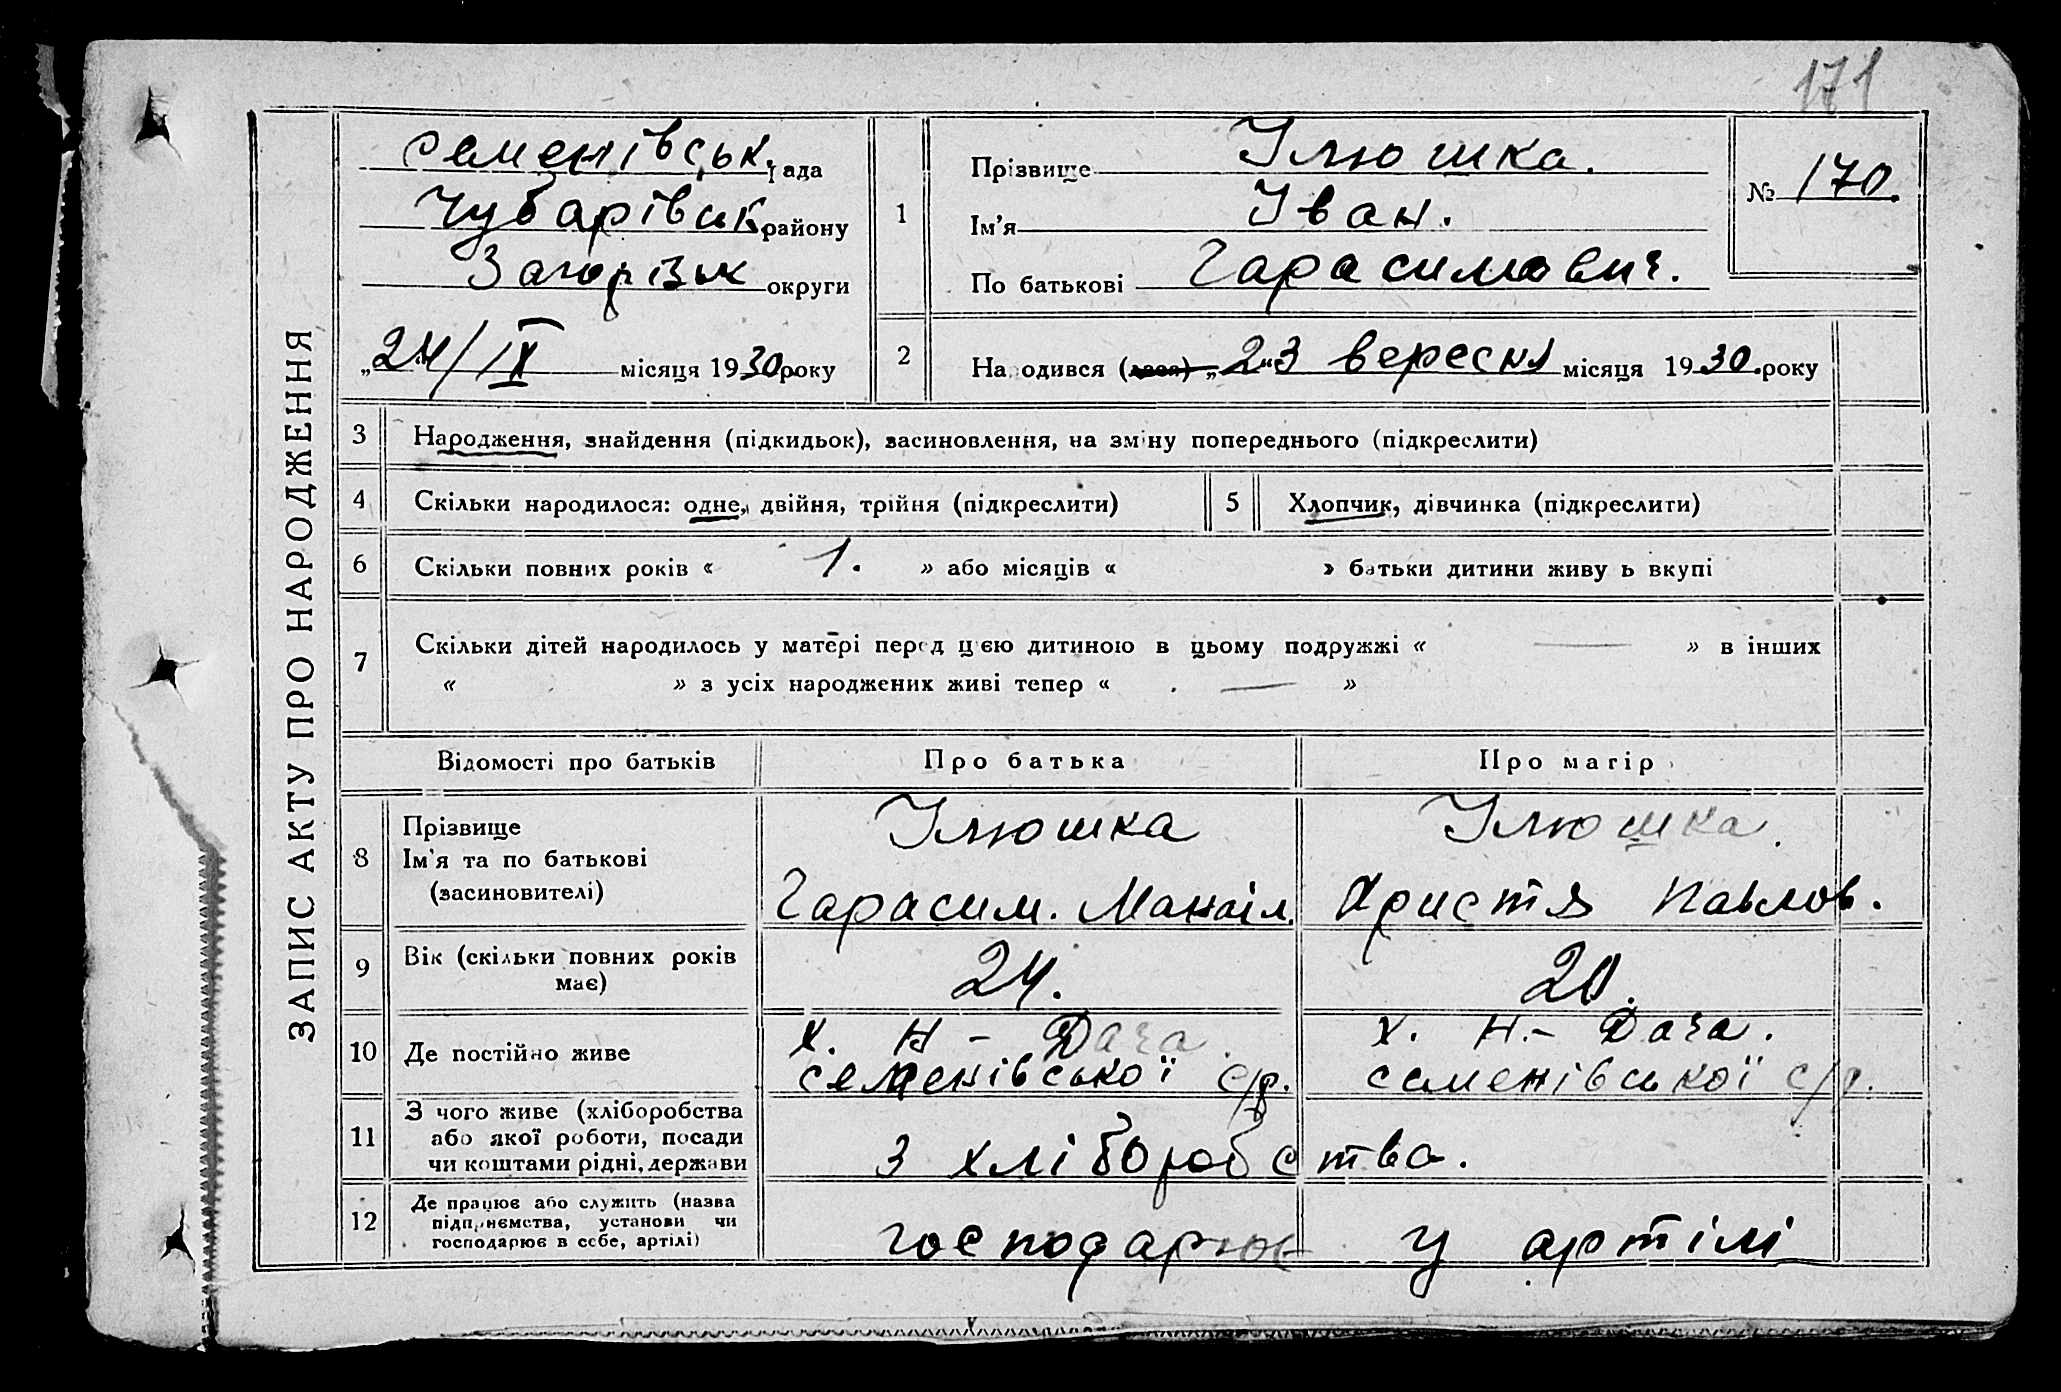 171
ЗАПИС АКТУ ПРО НАРОДЖЕННЯ
Семенівськ. рада
Чубарівськ району
Запоріз́ьк округи
„24/IX місяця 1930 року
1
Прізвище Ілюшка.
Ім'я Іван.
По батькові Гарасимович.
№ 170.
2
Народився (лася) „23 вересня місяця 1930. року
3 Народження, знайдення (підкидьок), засиновлення, на зміну попереднього (підкреслити)
4 Скільки народилося: одне, двійня, трійня (підкреслити)
5 Хлопчик, дівчинка (підкреслити)
6 Скільки повних років « 1. » або місяців « » батьки дитини живуть вкупі
7 Скільки дітей народилось у матері перед цією дитиною в цьому подружжі « — » в інших
« » з усіх народжених живі тепер « — »
Відомості про батьків Про батька Про матір
8 Прізвище
Ім'я та по батькові
(засиновителі)
Ілюшка
Гарасим. Манаіл.
Ілюшка.
Христя Павлов.
9 Вік (скільки повних років
має)
24. 20.
10 Де постійно живе
х. Н - Дача.
семенівської с/р.
х. Н. - Дача.
семенівської с/р.
11 З чого живе (хліборобства
або якої роботи, посади
чи коштами рідні, держави
з хліборобства.
12 Де працює або служить (назва
підприємства, установи чи
господарює в себе, артілі)
господарює у артілі